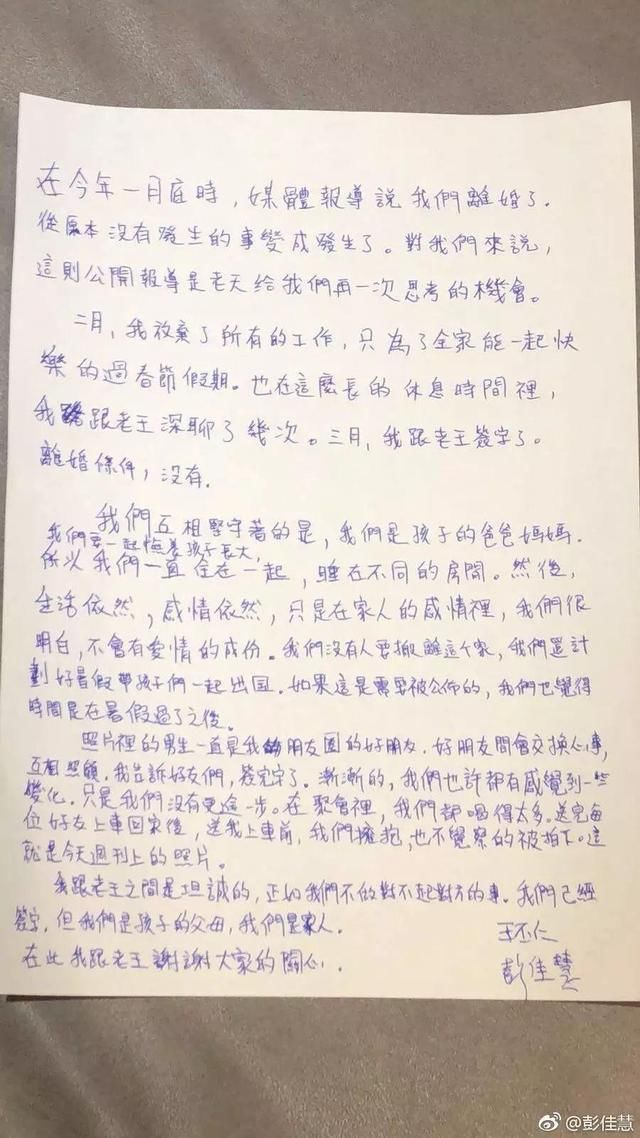 在今年一月底時，媒體報導說我們離婚了.
從原本沒有發生的事變成發生了。對我們來說，
這則公開報導是老天給我們再一次思考的機會。
二月，我放棄了所有的工作，只為了全家能一起快
樂的過春節假期。也在這麼長的休息時間裡，
我跟老王深聊了幾次。三月，我跟老王簽字了。
離婚條件，沒有.
我們互相堅守著的是，我們是孩子的爸爸媽媽.
我們要一起陪養孩子長大，
所以我們一直住在一起，睡在不同的房間。然後，
生活依然，感情依然，只是在家人的感情裡，我們很
明白，不會有愛情的成份。我們沒有人要搬離這个家，我們還計
劃好暑假帶孩子們一起出国. 如果這是需要被公佈的，我們也覺得
時間是在暑假過了之後。
照片裡的男生一直是我朋友圈的好朋友. 好朋友間會交換心事，
互相照顧. 我告訴好友們，簽完字了. 漸漸的，我們也許都有感覺到一些
變化. 只是我們沒有更進一步. 在聚會裡，我們都喝得太多. 送完每
位好友上車回家後，送我上車前，我們擁抱，也不覺察的被拍下. 這
就是今天週刊上的照片.
我跟老王之間是坦誠的，正如我們不做對不起對方的事. 我們已經
簽字，但我們是孩子的父母，我們是家人.
王丕仁
在此我跟老王謝謝大家的關心.
彭佳慧
@彭佳慧